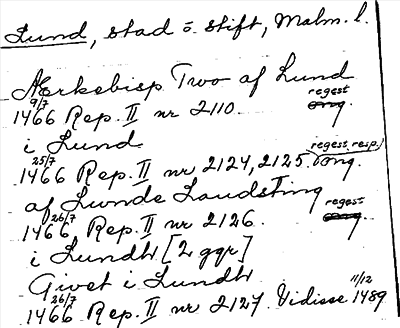 Lund, stad o. stift, Malm. l.
Ærkebisp Two af Lund
9/7 regest
1466 Rep. II nr 2110. orig.
i Lund
25/7 regest. resp.)
1466 Rep. II nr 2124, 2125. orig.
af Lunde Landsting
26/7 regest
1466 Rep. II nr 2126. orig.
i Lundh [2 ggr]
Givet i Lundh
26/7 11/12
1466 Rep. II nr 2127. Vidisse 1489